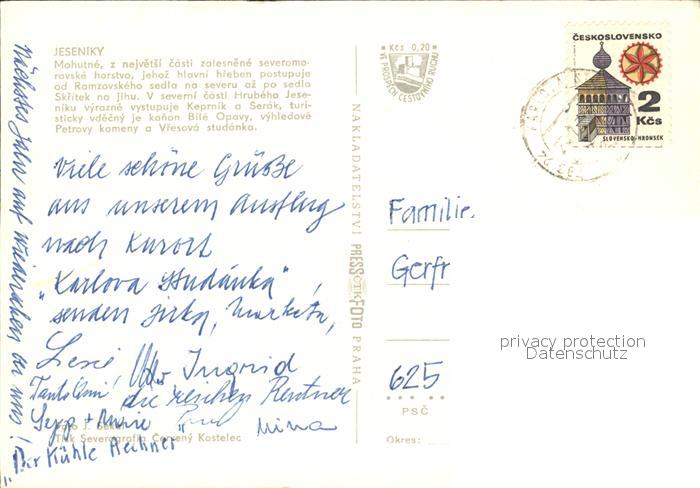 JESENÍKY
Mohutné, z největší části zalesněné severomo-
rovské horstvo, jehož hlavní hřeben postupuje
od Ramzovského sedla na severu až po sedlo
Skřítek na jihu. V severní části Hrubého Jese-
níku výrazně vystupuje Keprník a Šerák, turi-
sticky vděčný je kaňon Bílé Opavy, výhledově
Petrovy kameny a Vřesová studánka.
Viele schöne Grüße
aus unserem Ausflug
nach Kurort
"Karlova Studánka",
senden Jirka, Marketa,
Ingrid
Tante
die reichen Rentner
Sepp +
Mina
"Der Kühle Rechner"
Foto J.
Tisk Severografia Červený Kostelec
Nächstes Jahr auf Wiedersehen bei uns!
NAKLADATELSTVÍ PRESSFOTO PRAHA
Kčs 0,20
VE PROSPĚCH CESTOVNÍHO RUCHU
ČESKOSLOVENSKO
2
Kčs
SLOVENSKO-HRONSEK
Familie
Gerfr
625
PSČ
Okres:
privacy protection
Datenschutz